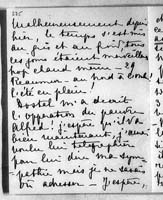 Malheureusement depuis
hier, le temps s'est mis
au gris et au froid, tous
ces jours étaient merveilleux
trop chaud même - 29
Réaumur - au nord à 6 ond!
l'été en plein!
Dostal m'a décrit
l'opération du pauvre
Alfred! j'espère qu'il va
bien maintenant, j'aurai
voulu lui télégraphier
pour lui dire ma sym-
pathie mais je ne savais
où adresser - j'espère,